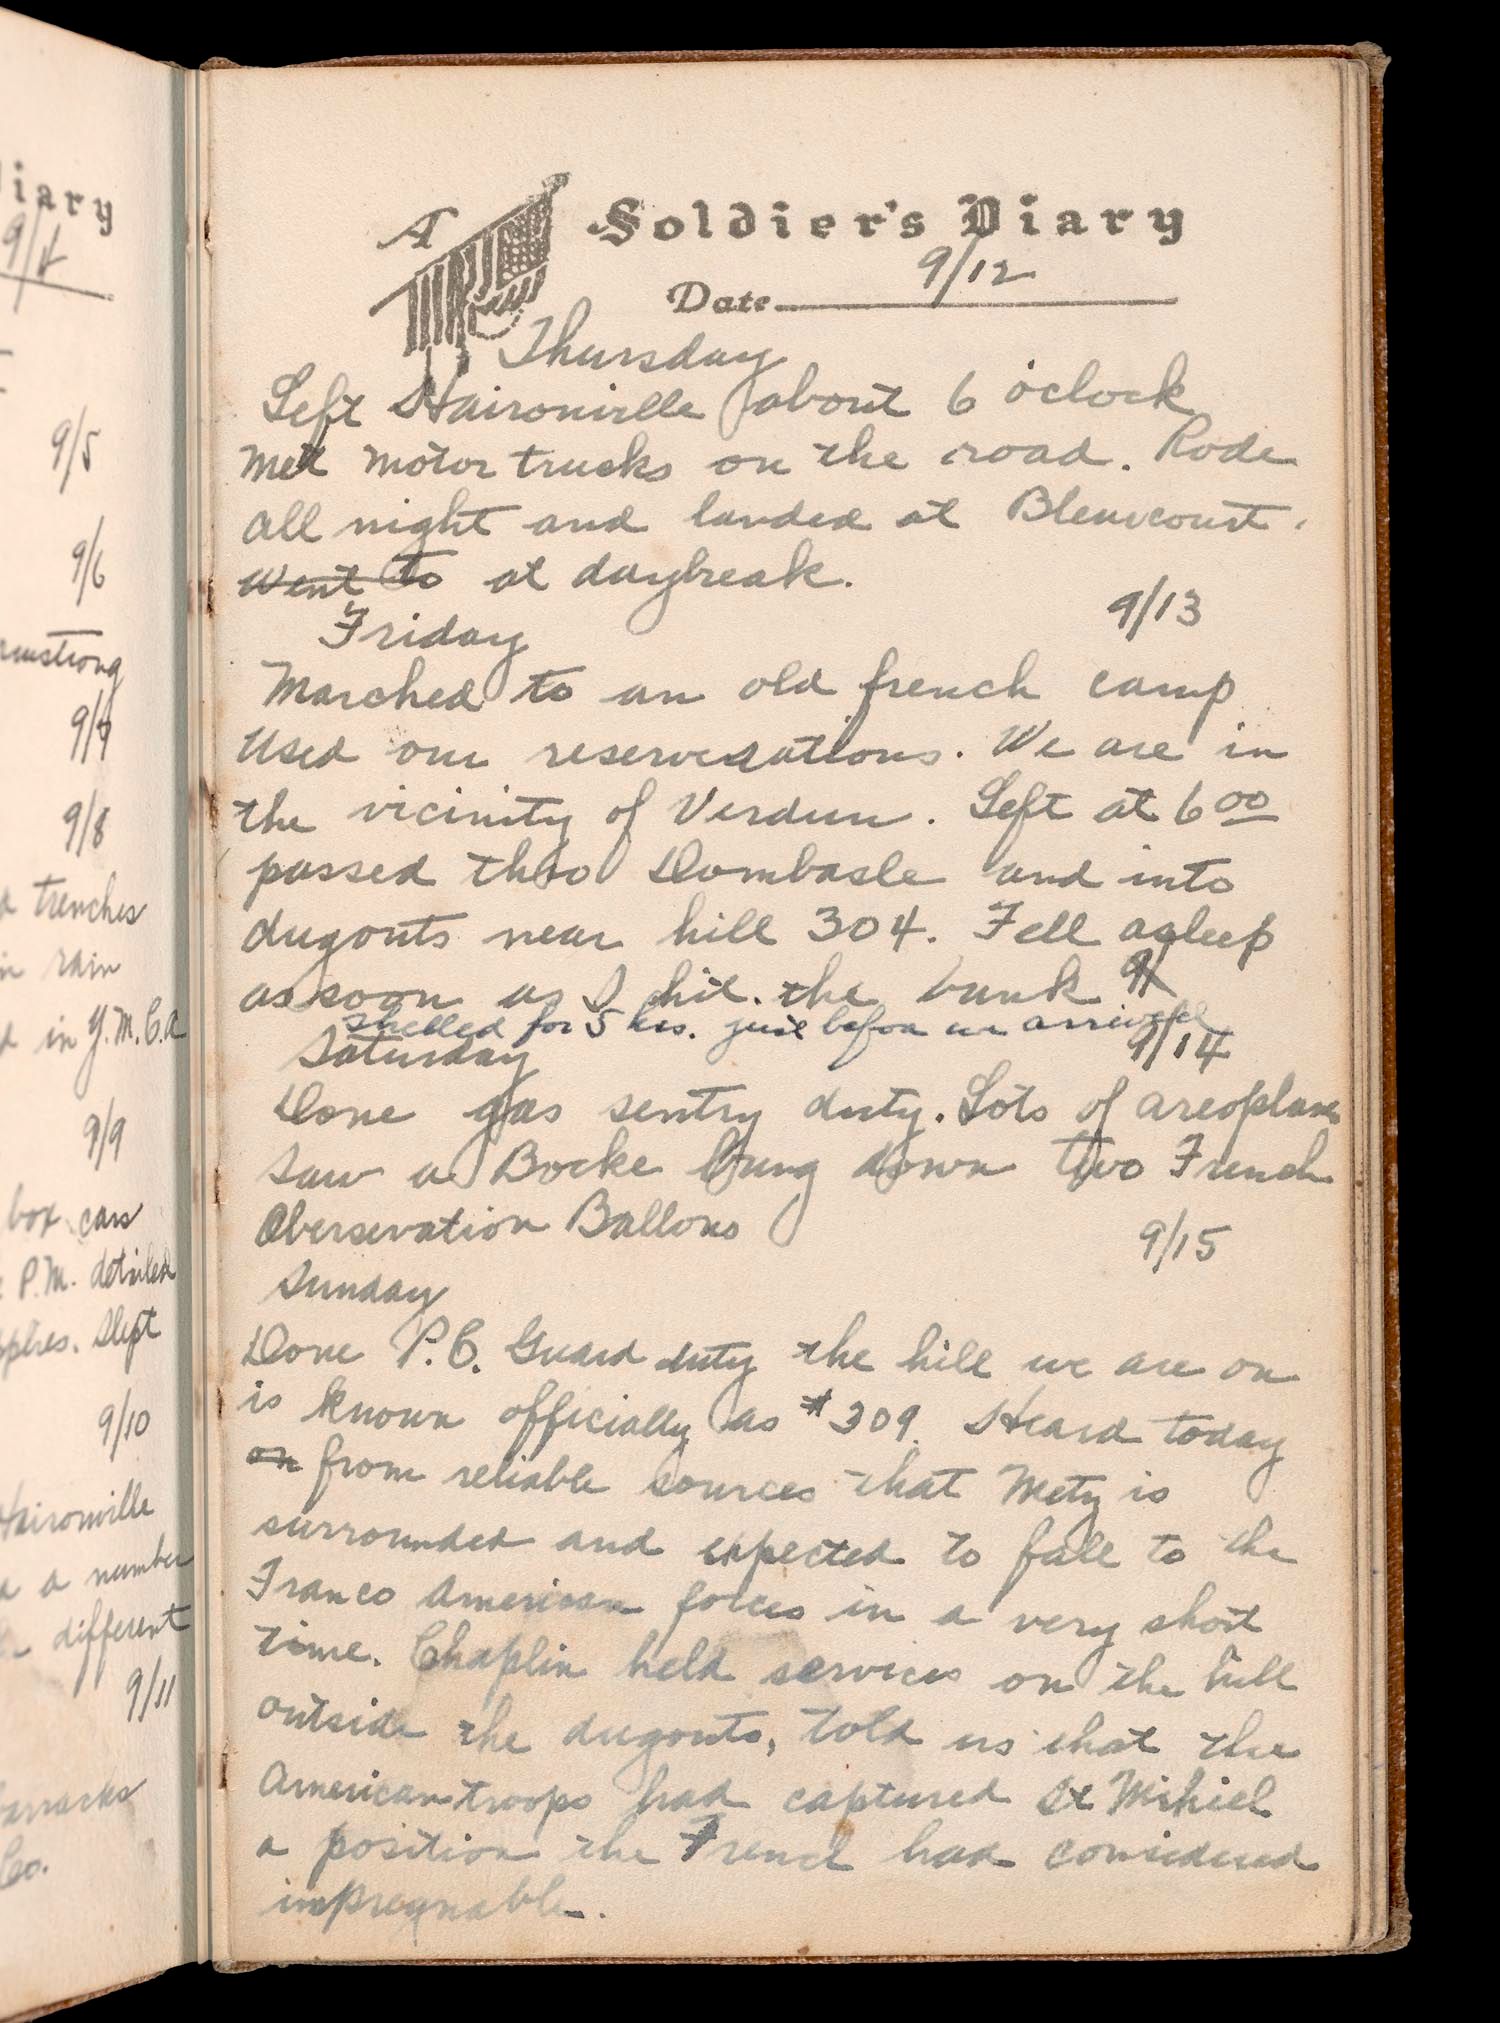 iary
9/4
9/5
9/6
rmstrong
9/7
9/8
trenches
in rain
in Y.M.C.A
9/9
box cars
P.M. detailed
Slept
9/10
Haironville
a number
different
9/11
barracks
Co.
A Soldier's Diary
Date 9/12
Thursday
Left Haironville about 6 o'clock
Met motor trucks on the road. Rode
all night and landed at Bleurcourt.
Went to at daybreak.
9/13
Friday
Marched to an old french camp
Used our reserverations. We are in
the vicinity of Verdun. Left at 6 00
passed thro Dombasle and into
dugouts near hill 304. Fell asleep
as soon as I hit the bunk 9/
shelled for 5 hrs. just before we arrived
Saturday 9/14
Done gas sentry duty. Lots of areoplanes
Saw a Bocke bring down two French
Oberservation Ballons
9/15
Sunday
Done P.C. Guard duty the hill we are on
is known officially as #309. Heard today
on from reliable sources that Metz is
surrounded and expected to fall to the
Franco American forces in a very short
time. Chaplin held services on the hill
outside the dugouts, told us that the
American troops had captured St Mihiel
a position the French had considered
impregnable.